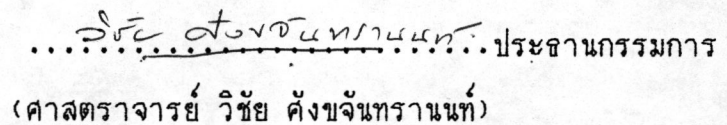 วิชัย ศังขจันทรานนท์ ประธานกรรมการ
(ศาสตราจารย์ วิชัย ศังขจันทรานนท์)